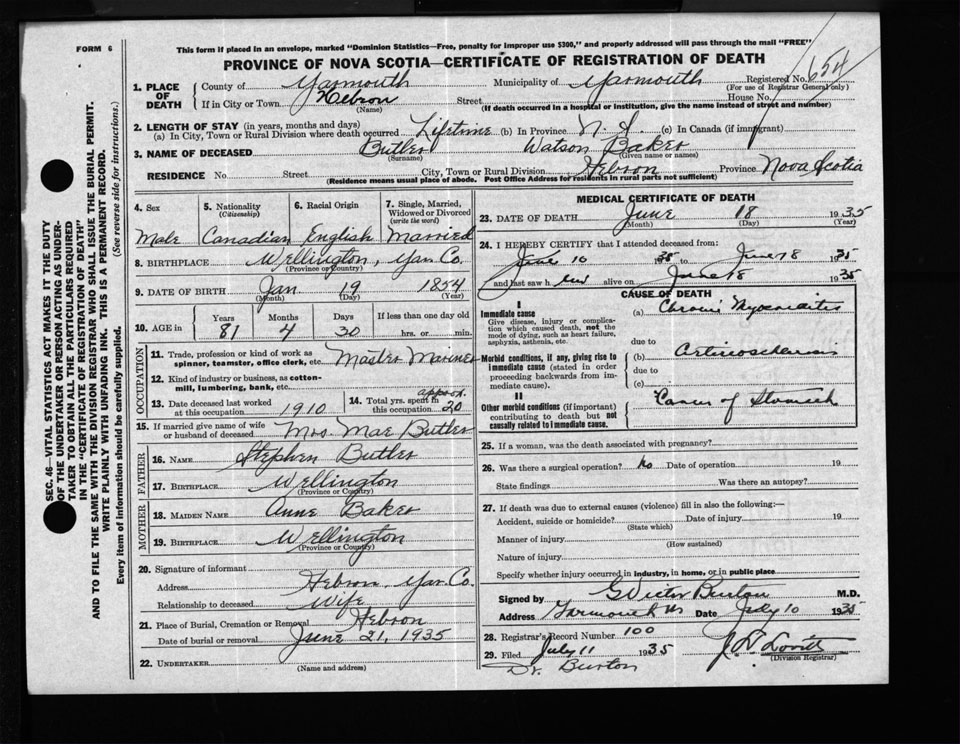 FORM 6
This form if placed in an envelope, marked "Dominion Statistics—Free, penalty for improper use $300," and properly addressed will pass through the mail "FREE"
PROVINCE OF NOVA SCOTIA—CERTIFICATE OF REGISTRATION OF DEATH
654
1. PLACE OF DEATH
County of Yarmouth Municipality of Yarmouth Registered No.
(For use of Registrar General only)
If in City or Town Hebron Street House No.
(Name) (If death occurred in a hospital or institution, give the name instead of street and number)
2. LENGTH OF STAY (in years, months and days)
(a) In City, Town or Rural Division where death occurred Lifetime (b) In Province N.S. (c) In Canada (if immigrant)
3. NAME OF DECEASED Butler Watson Baker
(Surname) (Given name or names)
RESIDENCE No. Street City, Town or Rural Division Hebron Province Nova Scotia
(Residence means usual place of abode. Post Office Address for residents in rural parts not sufficient)
SEC. 46—VITAL STATISTICS ACT MAKES IT THE DUTY
OF THE UNDERTAKER OR PERSON ACTING AS UNDER-
TAKER TO OBTAIN ALL THE PARTICULARS REQUIRED
IN THE "CERTIFICATE OF REGISTRATION OF DEATH"
AND TO FILE THE SAME WITH THE DIVISION REGISTRAR WHO SHALL ISSUE THE BURIAL PERMIT.
WRITE PLAINLY WITH UNFADING INK. THIS IS A PERMANENT RECORD.
Every item of information should be carefully supplied. (See reverse side for instructions.)
4. Sex 5. Nationality (Citizenship) 6. Racial Origin 7. Single, Married, Widowed or Divorced (write the word)
Male Canadian English Married
8. BIRTHPLACE Wellington, Yar. Co.
(Province or Country)
9. DATE OF BIRTH Jan. 19 1854
(Month) (Day) (Year)
10. AGE in Years Months Days If less than one day old
81 4 30 hrs. or min.
OCCUPATION
11. Trade, profession or kind of work as spinner, teamster, office clerk, etc. Master Mariner
12. Kind of industry or business, as cotton-mill, lumbering, bank, etc.
13. Date deceased last worked at this occupation 1910 14. Total yrs. spent in this occupation approx. 20
15. If married give name of wife or husband of deceased Mrs. Mae Butler
FATHER
16. NAME Stephen Butler
17. BIRTHPLACE Wellington
(Province or Country)
MOTHER
18. MAIDEN NAME Anne Baker
19. BIRTHPLACE Wellington
(Province or Country)
20. Signature of informant
Address Hebron, Yar. Co.
Relationship to deceased Wife
21. Place of Burial, Cremation or Removal Hebron
Date of burial or removal June 21, 1935
22. UNDERTAKER
(Name and address)
MEDICAL CERTIFICATE OF DEATH
23. DATE OF DEATH June 18 1935
(Month) (Day) (Year)
24. I HEREBY CERTIFY that I attended deceased from:
June 16 1935 to June 18 1935
and last saw him alive on June 18 1935
CAUSE OF DEATH
I
Immediate cause (a) Chronic Myocarditis
Give disease, injury or complication which caused death, not the mode of dying, such as heart failure, asphyxia, asthenia, etc.
due to
Morbid conditions, if any, giving rise to immediate cause (stated in order proceeding backwards from immediate cause). (b) Arteriosclerosis
due to
(c)
II
Other morbid conditions (if important) contributing to death but not causally related to immediate cause. Cancer of Stomach
25. If a woman, was the death associated with pregnancy?
26. Was there a surgical operation? No Date of operation 19
State findings Was there an autopsy?
27. If death was due to external causes (violence) fill in also the following:—
Accident, suicide or homicide? Date of injury 19
(State which)
Manner of injury
(How sustained)
Nature of injury
Specify whether injury occurred in industry, in home, or in public place
Signed by G Victor Burton M.D.
Address Yarmouth NS Date July 10 1935
28. Registrar's Record Number 100
29. Filed July 11 1935
(Division Registrar)
Dr. Burton